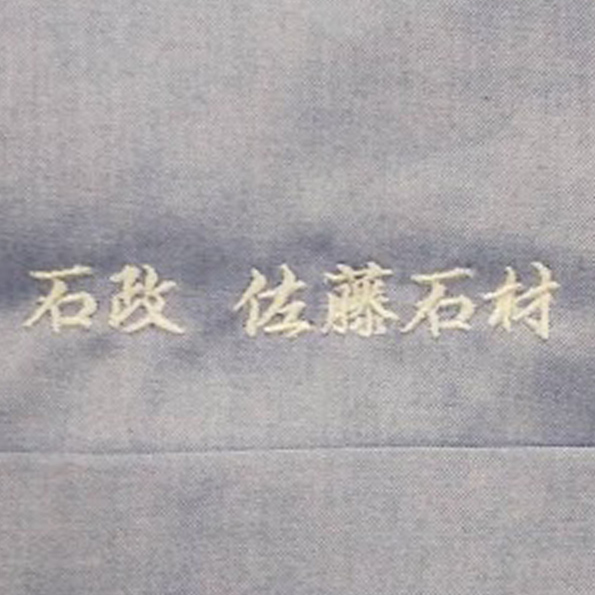 石政 佐藤石材